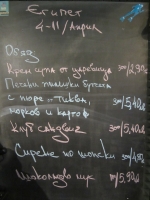 Египет
4-11/Април
Обяд
Крем супа от царевица 300/2,90лв
Пилешки бутчета
с пюре - тиква,
моркови и картоф 300/5,40лв
Клуб сандвич 300/5,40лв
Сирене по шопски 300/4,90
Шоколадов мус /5,90лв